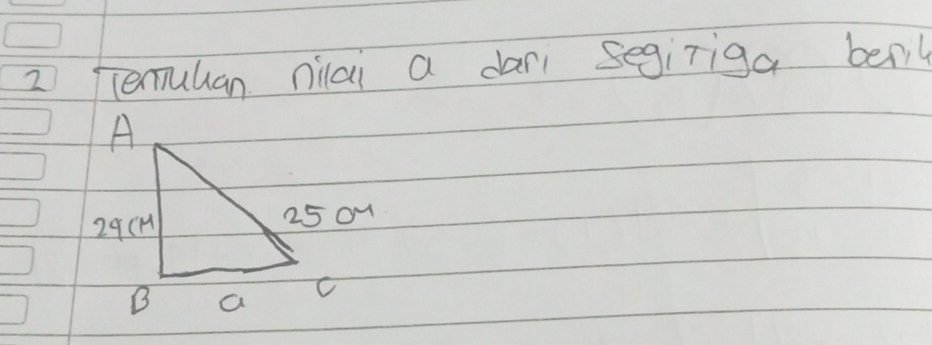 2 Temukan nilai a dari segitiga berik
A
24 CM
25 CM
B a C